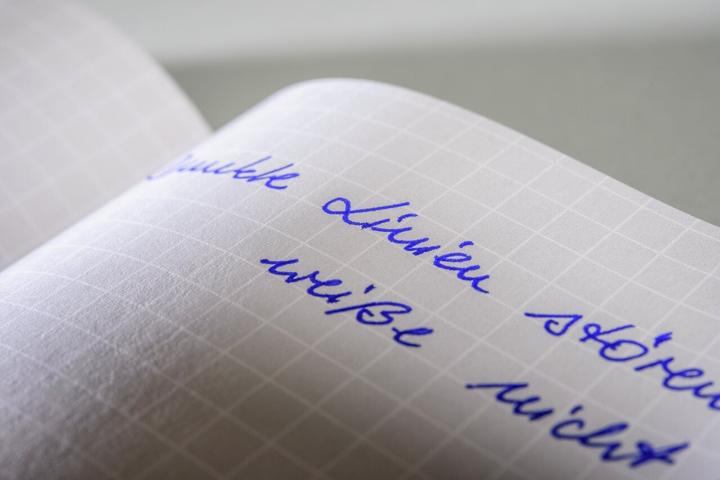 Dunkle Linien stören
weiße nicht